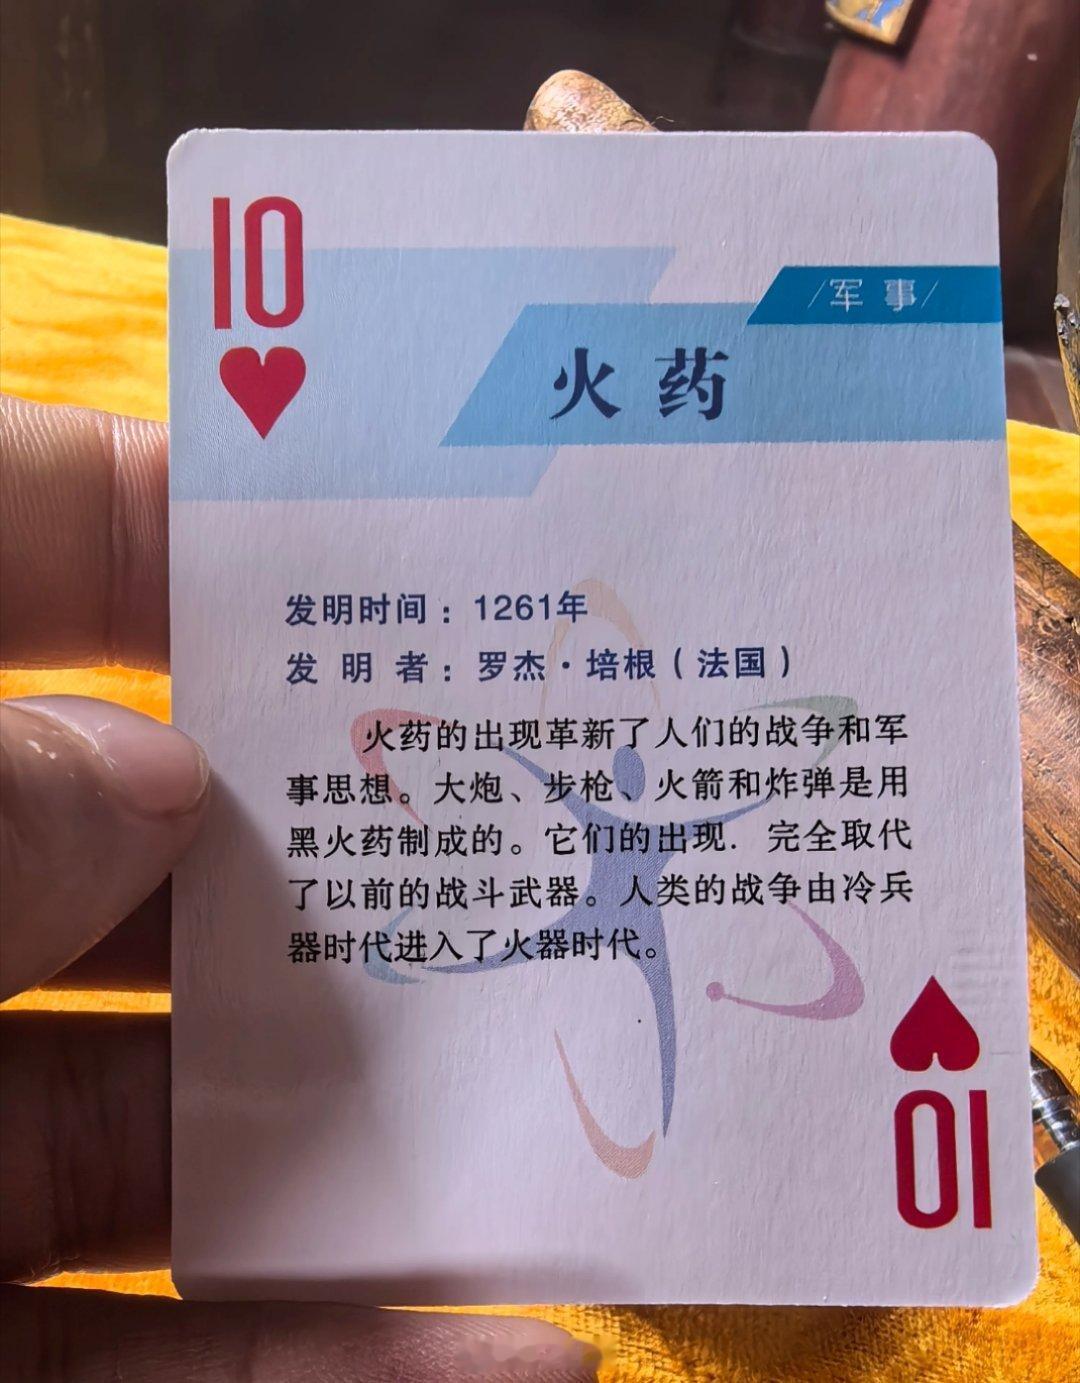 10
/军 事/
火 药
发明时间：1261年
发 明 者：罗杰·培根（法国）
火药的出现革新了人们的战争和军
事思想。大炮、步枪、火箭和炸弹是用
黑火药制成的。它们的出现．完全取代
了以前的战斗武器。人类的战争由冷兵
器时代进入了火器时代。
10